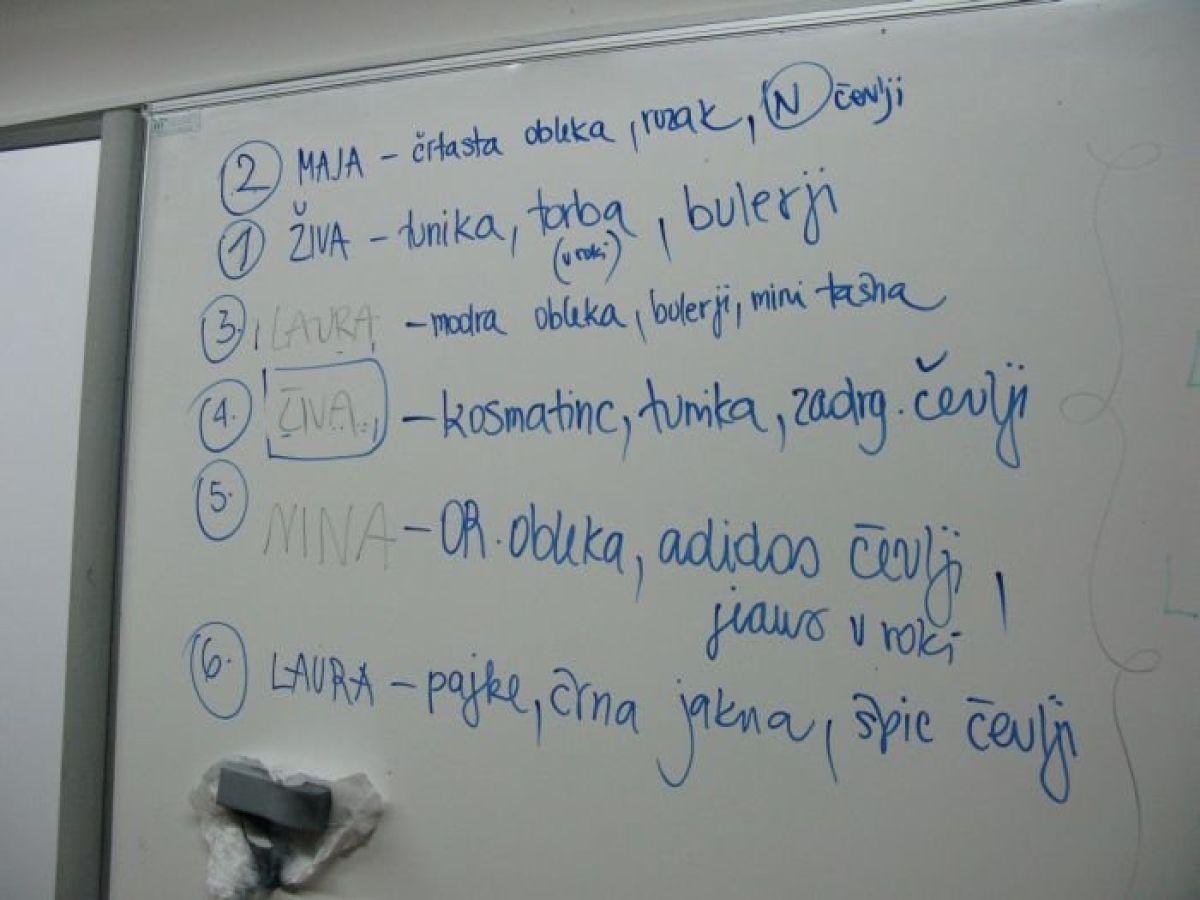 ② MAJA - črtasta obleka, ruzak, Ⓝ čevlji
① ŽIVA - tunika, torba, bulerji
(v roki)
③. LAURA - modra obleka, bulerji, mini tašna
④. ŽIVA - kosmatinc, tunika, zadrg. čevlji
⑤. NINA - OR. obleka, adidas čevlji,
v roki
⑥. LAURA - pajke, črna jakna, špic čevlji